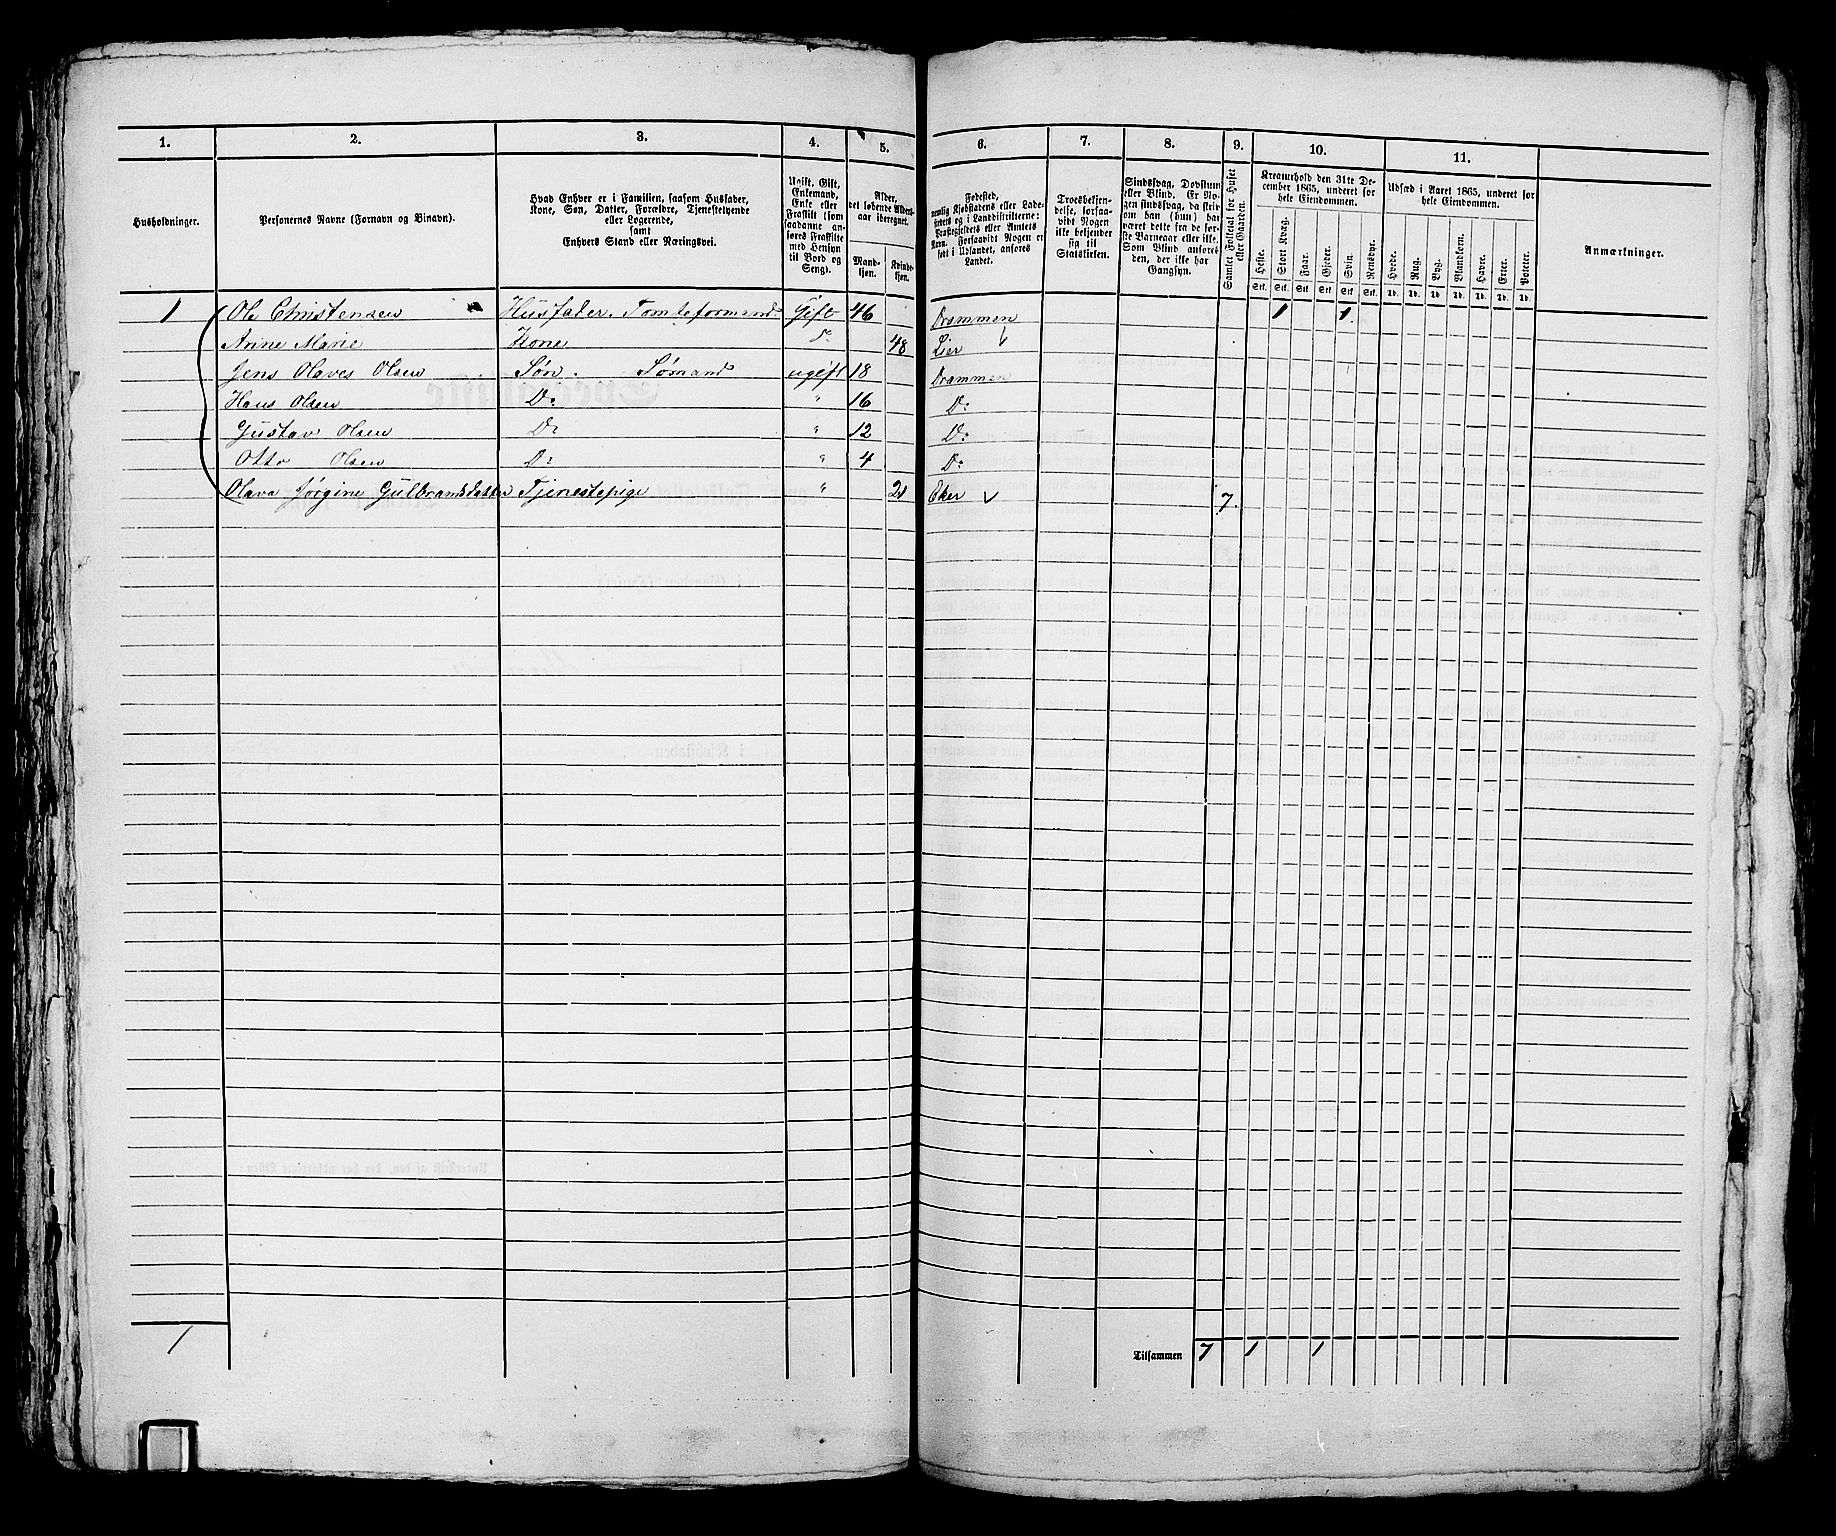 1. 2. 3. 4. 5. 6. 7. 8. 9. 10. 11.
Husholdninger.
Personernes Navne (Fornavn og Binavn).
Hvad Enhver er i Familien, saasom Husfader,
Kone, Søn, Datter, Forældre, Tjenestetyende
eller Logerende,
samt
Enhvers Stand eller Næringsvei.
Ugift, Gift,
Enkemand,
Enke eller
Fraskilt (som
saadanne an-
føres Fraskilte
med Hensyn
til Bord og
Seng).
Alder,
det løbende Alders-
aar iberegnet.
Mand-
kjøn.
Kvinde-
kjøn.
Fødested,
nemlig Kjøbstadens eller Lade-
stedets og i Landdistrikterne:
Præstegjældets eller Amtets
Navn. Forsaavidt Nogen er
født i Udlandet, anføres
Landet.
Troesbekjen-
delse, forsaa-
vidt Nogen
ikke bekjender
sig til
Statskirken.
Sindssvag, Døvstum
eller Blind. Er No-
gen sindssvag, da skriv
om han (hun) har
været dette fra de før-
ste Barneaar eller ikke.
Som Blind anføres
den, der ikke har
Gangsyn.
Samlet Folketal for Huset
eller Gaarden.
Kreaturhold den 31te De-
cember 1865, underet for
hele Eiendommen.
Heste. Stort Kvæg. Faar. Gjeder. Svin. Rensdyr.
Stk. Stk. Stk. Stk. Stk. Stk.
Udsæd i Aaret 1865, underet for
hele Eiendommen.
Hvede. Rug. Byg. Blandkorn. Havre. Erter. Poteter.
Td. Td. Td. Td. Td. Td. Td.
Anmærkninger.
1 Ole Christensen Husfader. Tomteformand Gift 46 Drammen 1 1
Anne Marie Kone Do 48 Lier
Jens Olaves Olsen Søn. Sømand ugift 18 Drammen
Hans Olsen Do " 16 Do
Gustav Olsen Do " 12 Do
Otto Olsen Do " 4 Do
Olava Jørgine Gulbrandsdatter Tjenestepige " 21 Eker 7
1 Tilsammen 7 1 1